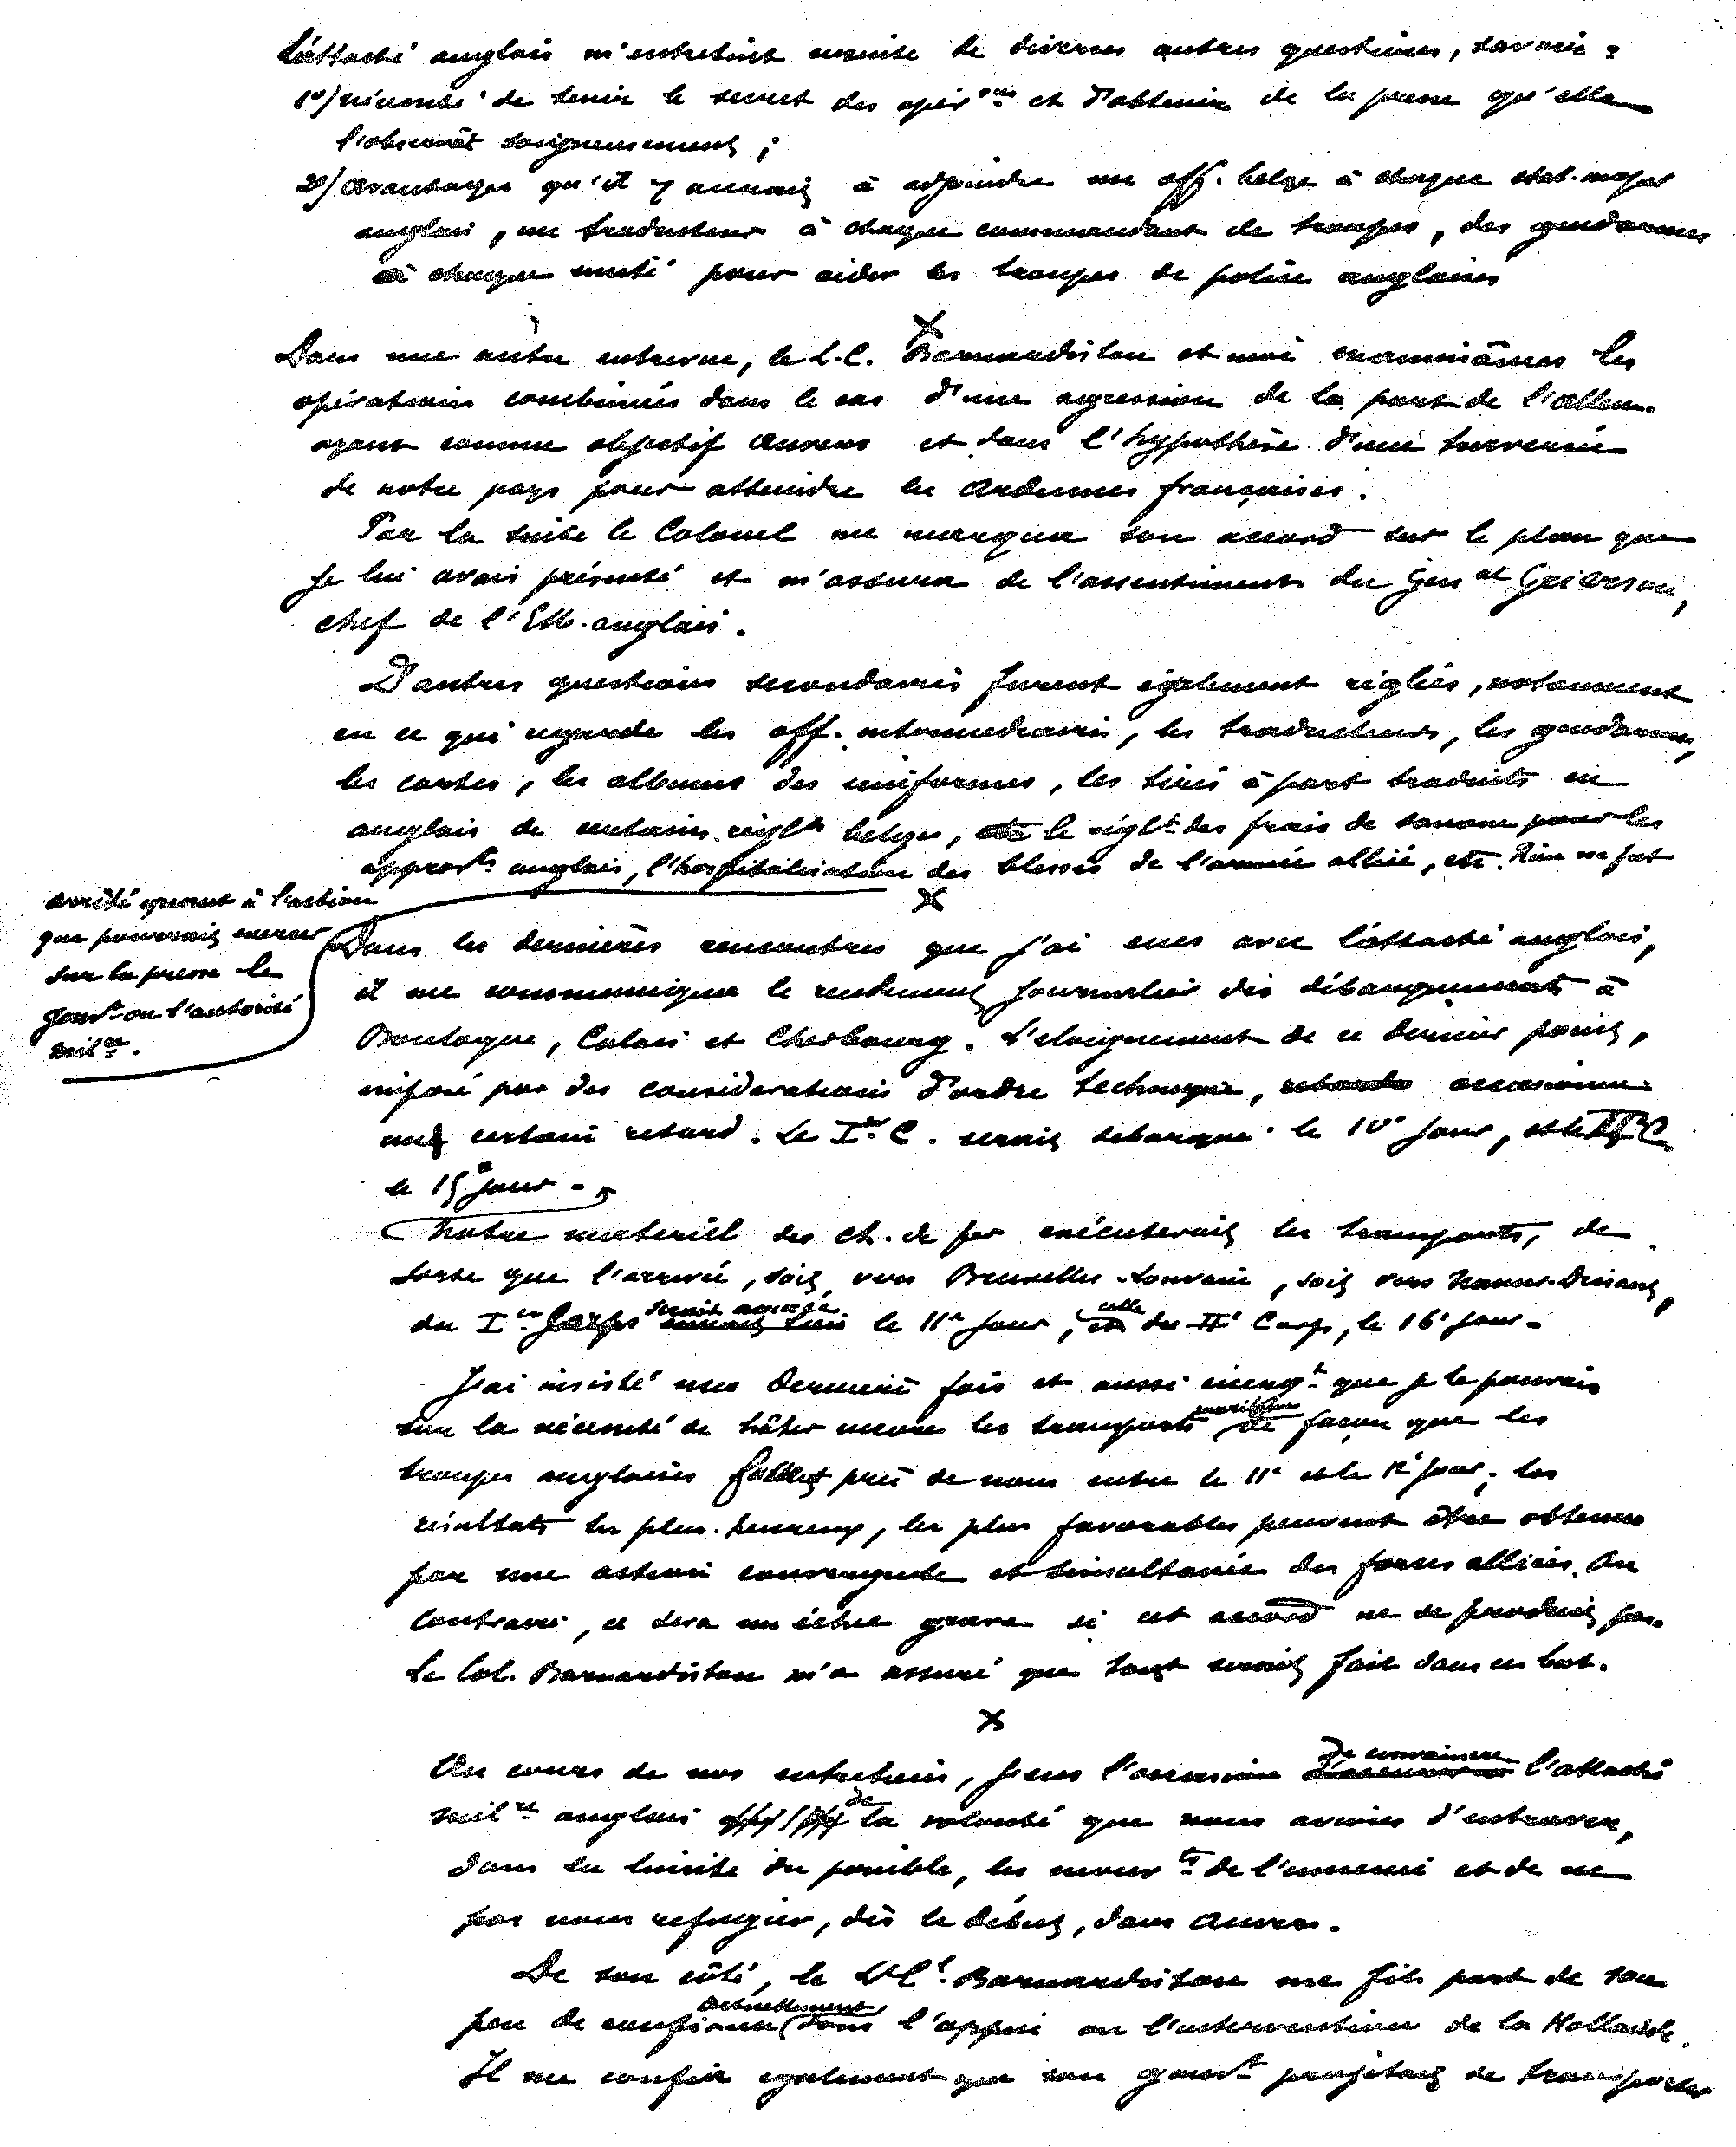 L'attaché anglais m'entretint ensuite de diverses autres questions, savoir :
1°/ nécessité de tenir le secret des opér ons et d'obtenir de la presse qu'elle
l'observât soigneusement ;
2°/ Avantages qu'il y aurait à adjoindre un off. belge à chaque état-major
anglais, un traducteur à chaque commandant de troupes, des gendarmes
à chaque unité pour aider les troupes de police anglaises
X
Dans une autre entrevue, le L.C. Barnardiston et moi examinâmes les
opérations combinées dans le cas d'une agression de la part de l'Allem.
ayant comme objectif Anvers et dans l'hypothèse d'une traversée
de notre pays pour atteindre les Ardennes françaises.
Par la suite le Colonel me marqua son accord sur le plan que
je lui avais présenté et m'assura de l'assentiment du Gén al Grierson,
chef de l'EM. anglais.
D'autres questions secondaires furent également réglées, notamment
en ce qui regarde les off. intermédiaires, les traducteurs, les gendarmes,
les cartes, les albums des uniformes, les tirés à part traduits en
anglais de certains règlts belges, le règlt des frais de douane pour les
approvts anglais, l'hospitalisation des blessés de l'armée alliée, etc. Rien ne fut
arrêté quant à l'action
que pourrait exercer
sur la presse le
Gouvt ou l'autorité
milre.
X
Dans les dernières rencontres que j'ai eues avec l'attaché anglais,
il me communiqua le rendement journalier des débarquements à
Boulogne, Calais et Cherbourg. L'éloignement de ce dernier point,
imposé par des considérations d'ordre technique, occasionne
un certain retard. Le Ier C. serait débarqué le 10e jour, et le IIe C.
le 15e jour.
Notre matériel des ch. de fer exécuterait les transports, de
sorte que l'arrivée, soit vers Bruxelles-Louvain, soit vers Namur-Dinant,
du Ier Corps serait assurée le 11e jour, et celle du IIe Corps, le 16e jour.
J'ai insisté une dernière fois et aussi énergt que je le pouvais
sur la nécessité de hâter encore les transports maritimes de façon que les
troupes anglaises près de nous entre le 11e et le 12e jour ; les
résultats les plus heureux, les plus favorables peuvent être obtenus
par une action convergente et simultanée des forces alliées. Au
contraire, ce sera un échec grave si cet accord ne se produit pas.
Le Col. Barnardiston m'a assuré que tout serait fait dans ce but.
X
Au cours de nos entretiens, j'eus l'occasion de convaincre l'attaché
mil re anglais de la volonté que nous avions d'entraver,
dans la limite du possible, les mouv ts de l'ennemi et de ne
pas nous réfugier, dès le début, dans Anvers.
De son côté, le Lt Cl. Barnardiston me fit part de son
peu de confiance actuellement dans l'appui ou l'intervention de la Hollande.
Il me confia également que son gouvt projetait de transporter